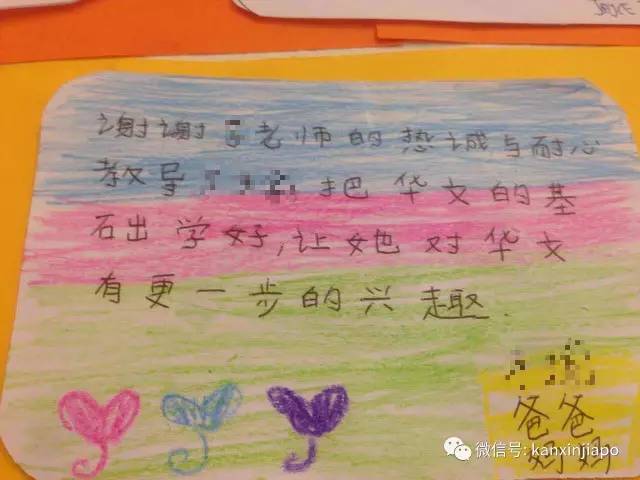 JOYCE
谢谢 老师的热诚与耐心
教导 把华文的基
础学好,让她对华文
有更一步的兴趣.
爸爸
妈妈
微信号: kanxinjiapo